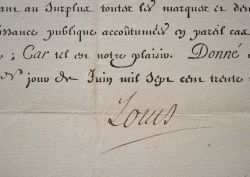 ant au Surplus toutes les marques et de
issance publique accoûtumées en pareil cas
; Car tel est notre plaisir. Donné
jour de Juin mil Sept cent trente
Louis